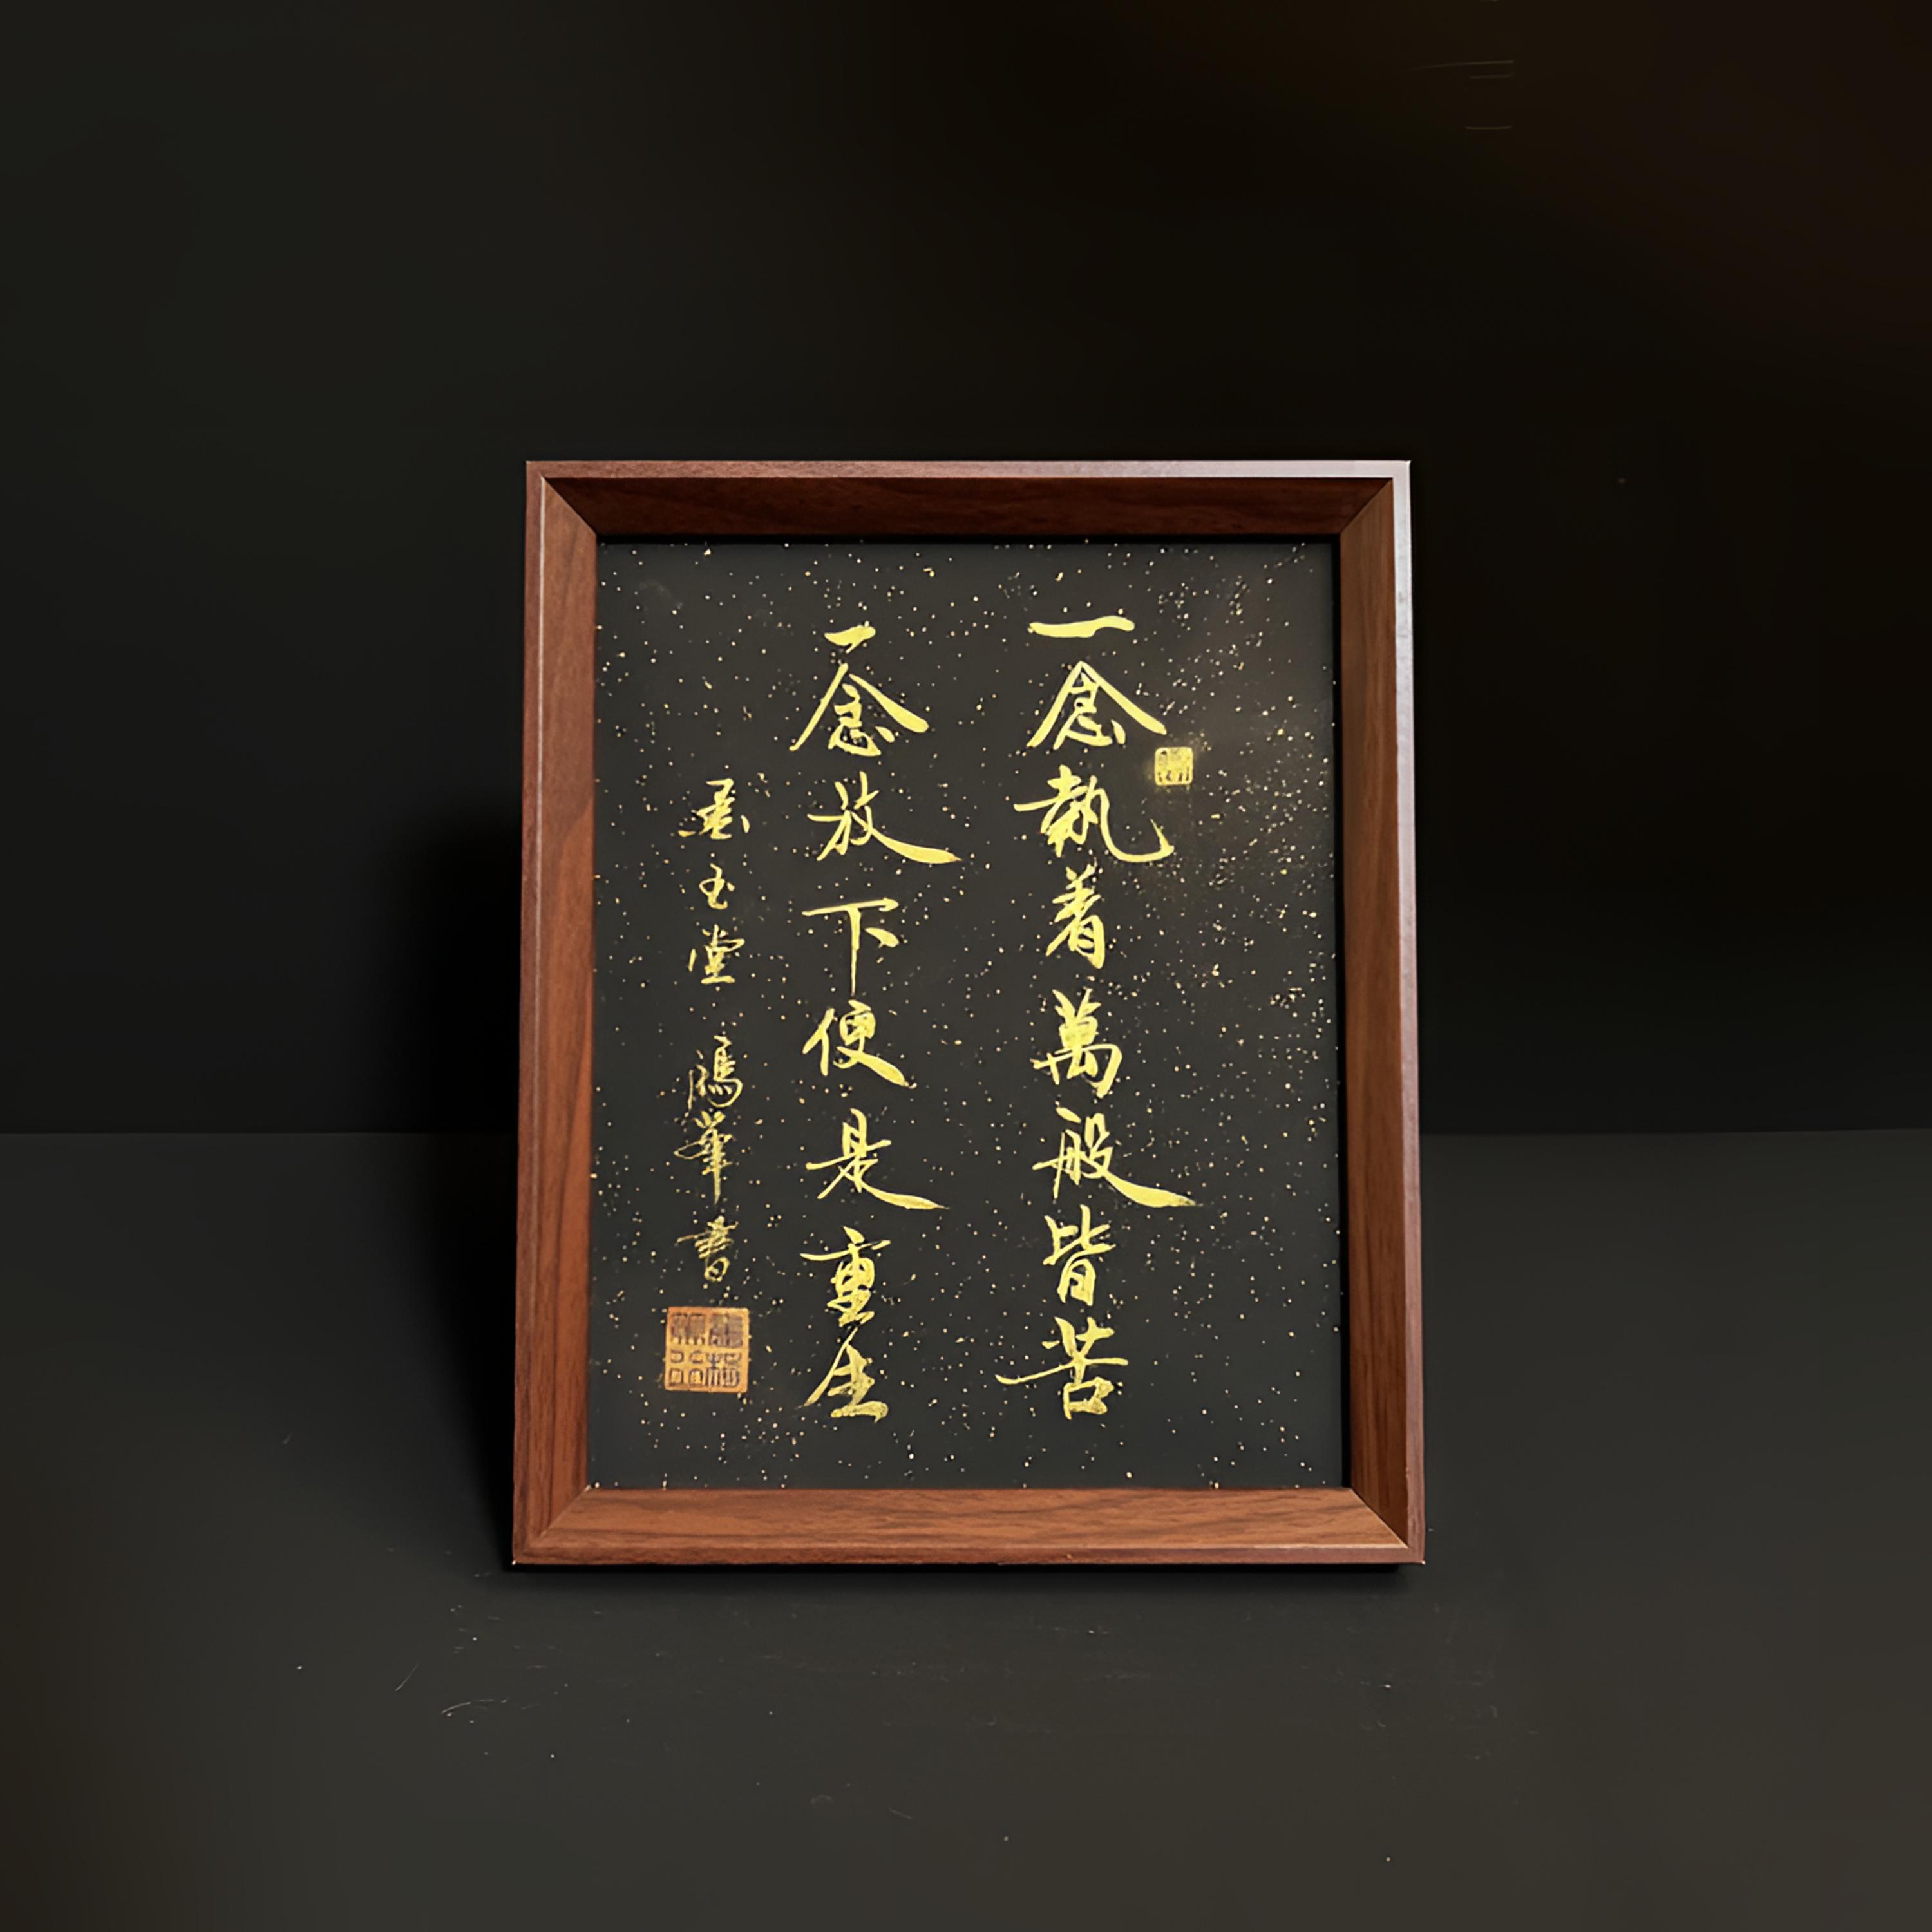 一念執着萬般皆苦
一念放下便是重生
墨玉堂 鴻峯書